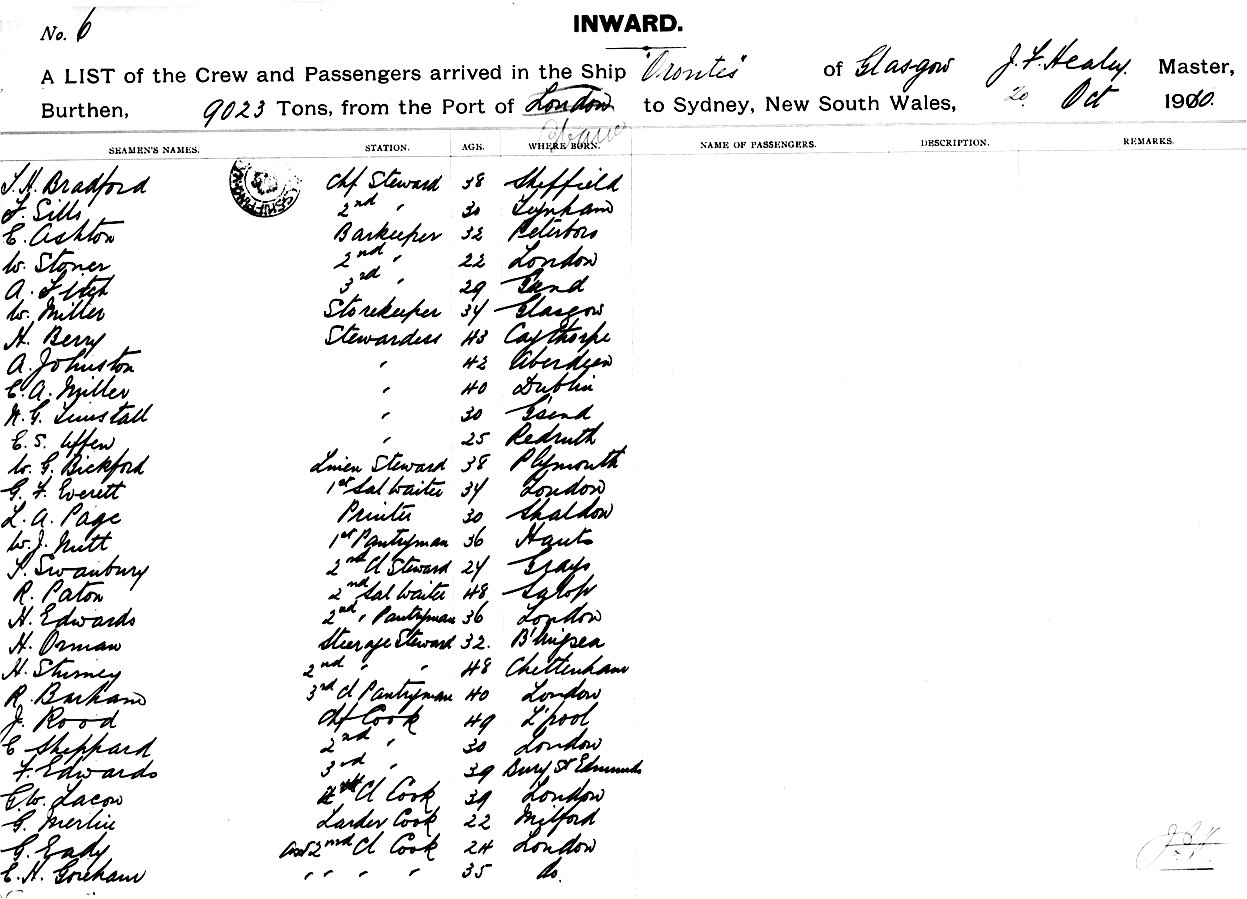 No. 6
INWARD.
A LIST of the Crew and Passengers arrived in the Ship "Orontes" of Glasgow J. F. Healey. Master,
Burthen, 9023 Tons, from the Port of London to Sydney, New South Wales, 20 Oct 1900.
SEAMEN'S NAMES. STATION. AGE. WHERE BORN. NAME OF PASSENGERS. DESCRIPTION. REMARKS.
Bradford Chf Steward 38 Sheffield
Sills 2nd " 30
E. Ashton Barkeeper 32 Peterboro
W. Stoner 2nd " 22 London
A. 3rd " 29
W. Miller Storekeeper 34 Glasgow
H. Berry Stewardess 43 Caythorpe
A. Johnston " 42 Aberdeen
E. A. Miller " 40 Dublin
" 30 G'send
E. S. Uffen " 25 Redruth
W. G. Bickford Linen Steward 38 Plymouth
G. F. Everett 1st Sal Waiter 34 London
L. A. Page Printer 30 Shaldon
W. J. Nutt 1st Pantryman 36 Hants
Swanbury 2nd Cl Steward 24 Grays
R. Paton 2nd Sal Waiter 48 Salop
H. Edwards 2nd " Pantryman 36 London
H. Orman Steerage Steward 32.
H. 2nd " " 48 Cheltenham
R. Barham 3rd Cl Pantryman 40 London
J. Rood Chf Cook 49 L'pool
E Sheppard 2nd " 30 London
F. Edwards 3rd " 39 Bury St Edmunds
G. W. Lacon Cl Cook 39 London
G. Merlin Larder Cook 22 Milford
G. Eady 2nd Cl Cook 24 London
E. H. Goreham " " " " 35 do.